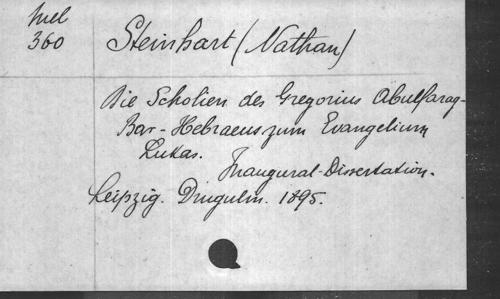 Mel
360
Steinhart (Nathan)
Die Scholien des Gregorius Abulfarag-
Bar-Hebraeus zum Evangelium
Lukas. Inaugural-Dissertation.
Leipzig. Drugulin. 1895.